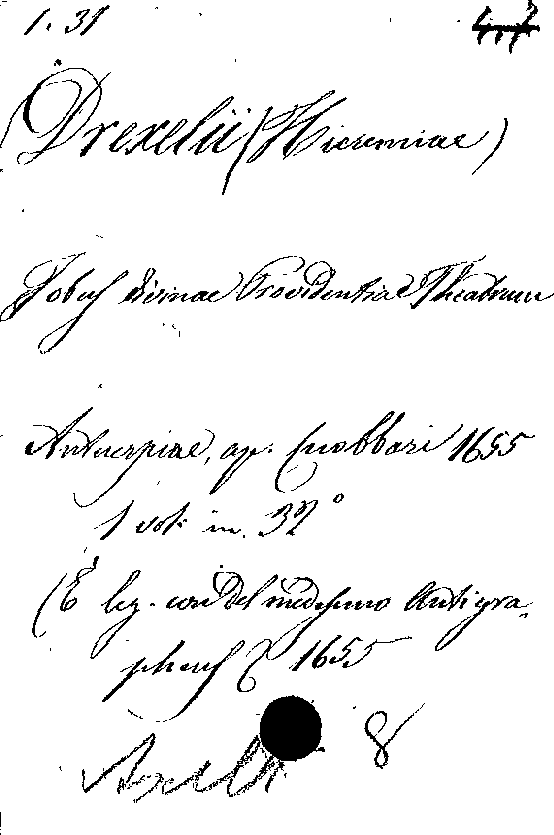 1. 31 4,7
Drexelii (Hieremiae)
Jobus divinae Providentiae Theatrum
Antuerpiae, ap. Cnobbari 1655
1 vol. in 32°
(È leg. con del medesimo Antigra-
pheus 1655
8